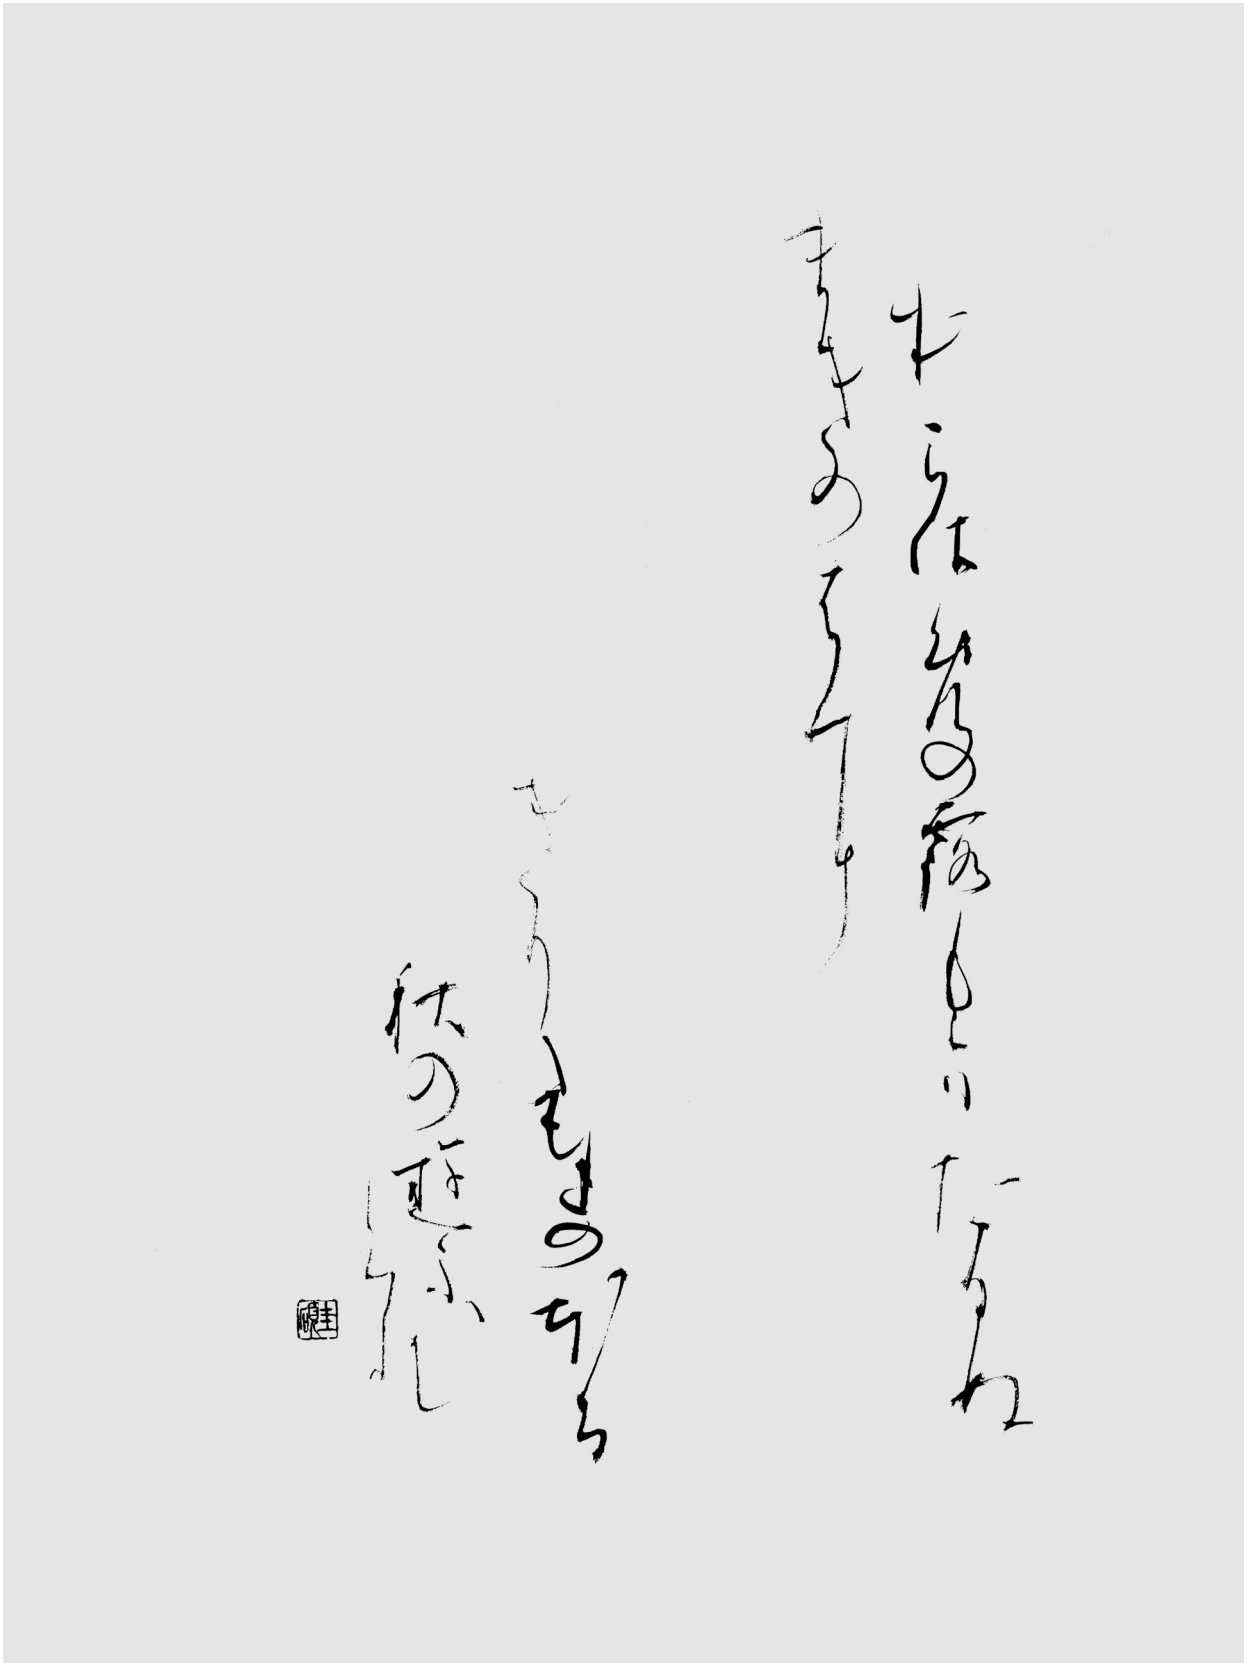 むらさめの露もまたひぬ
まきのはに
きりたちのほる
秋の遊ふ
くれ